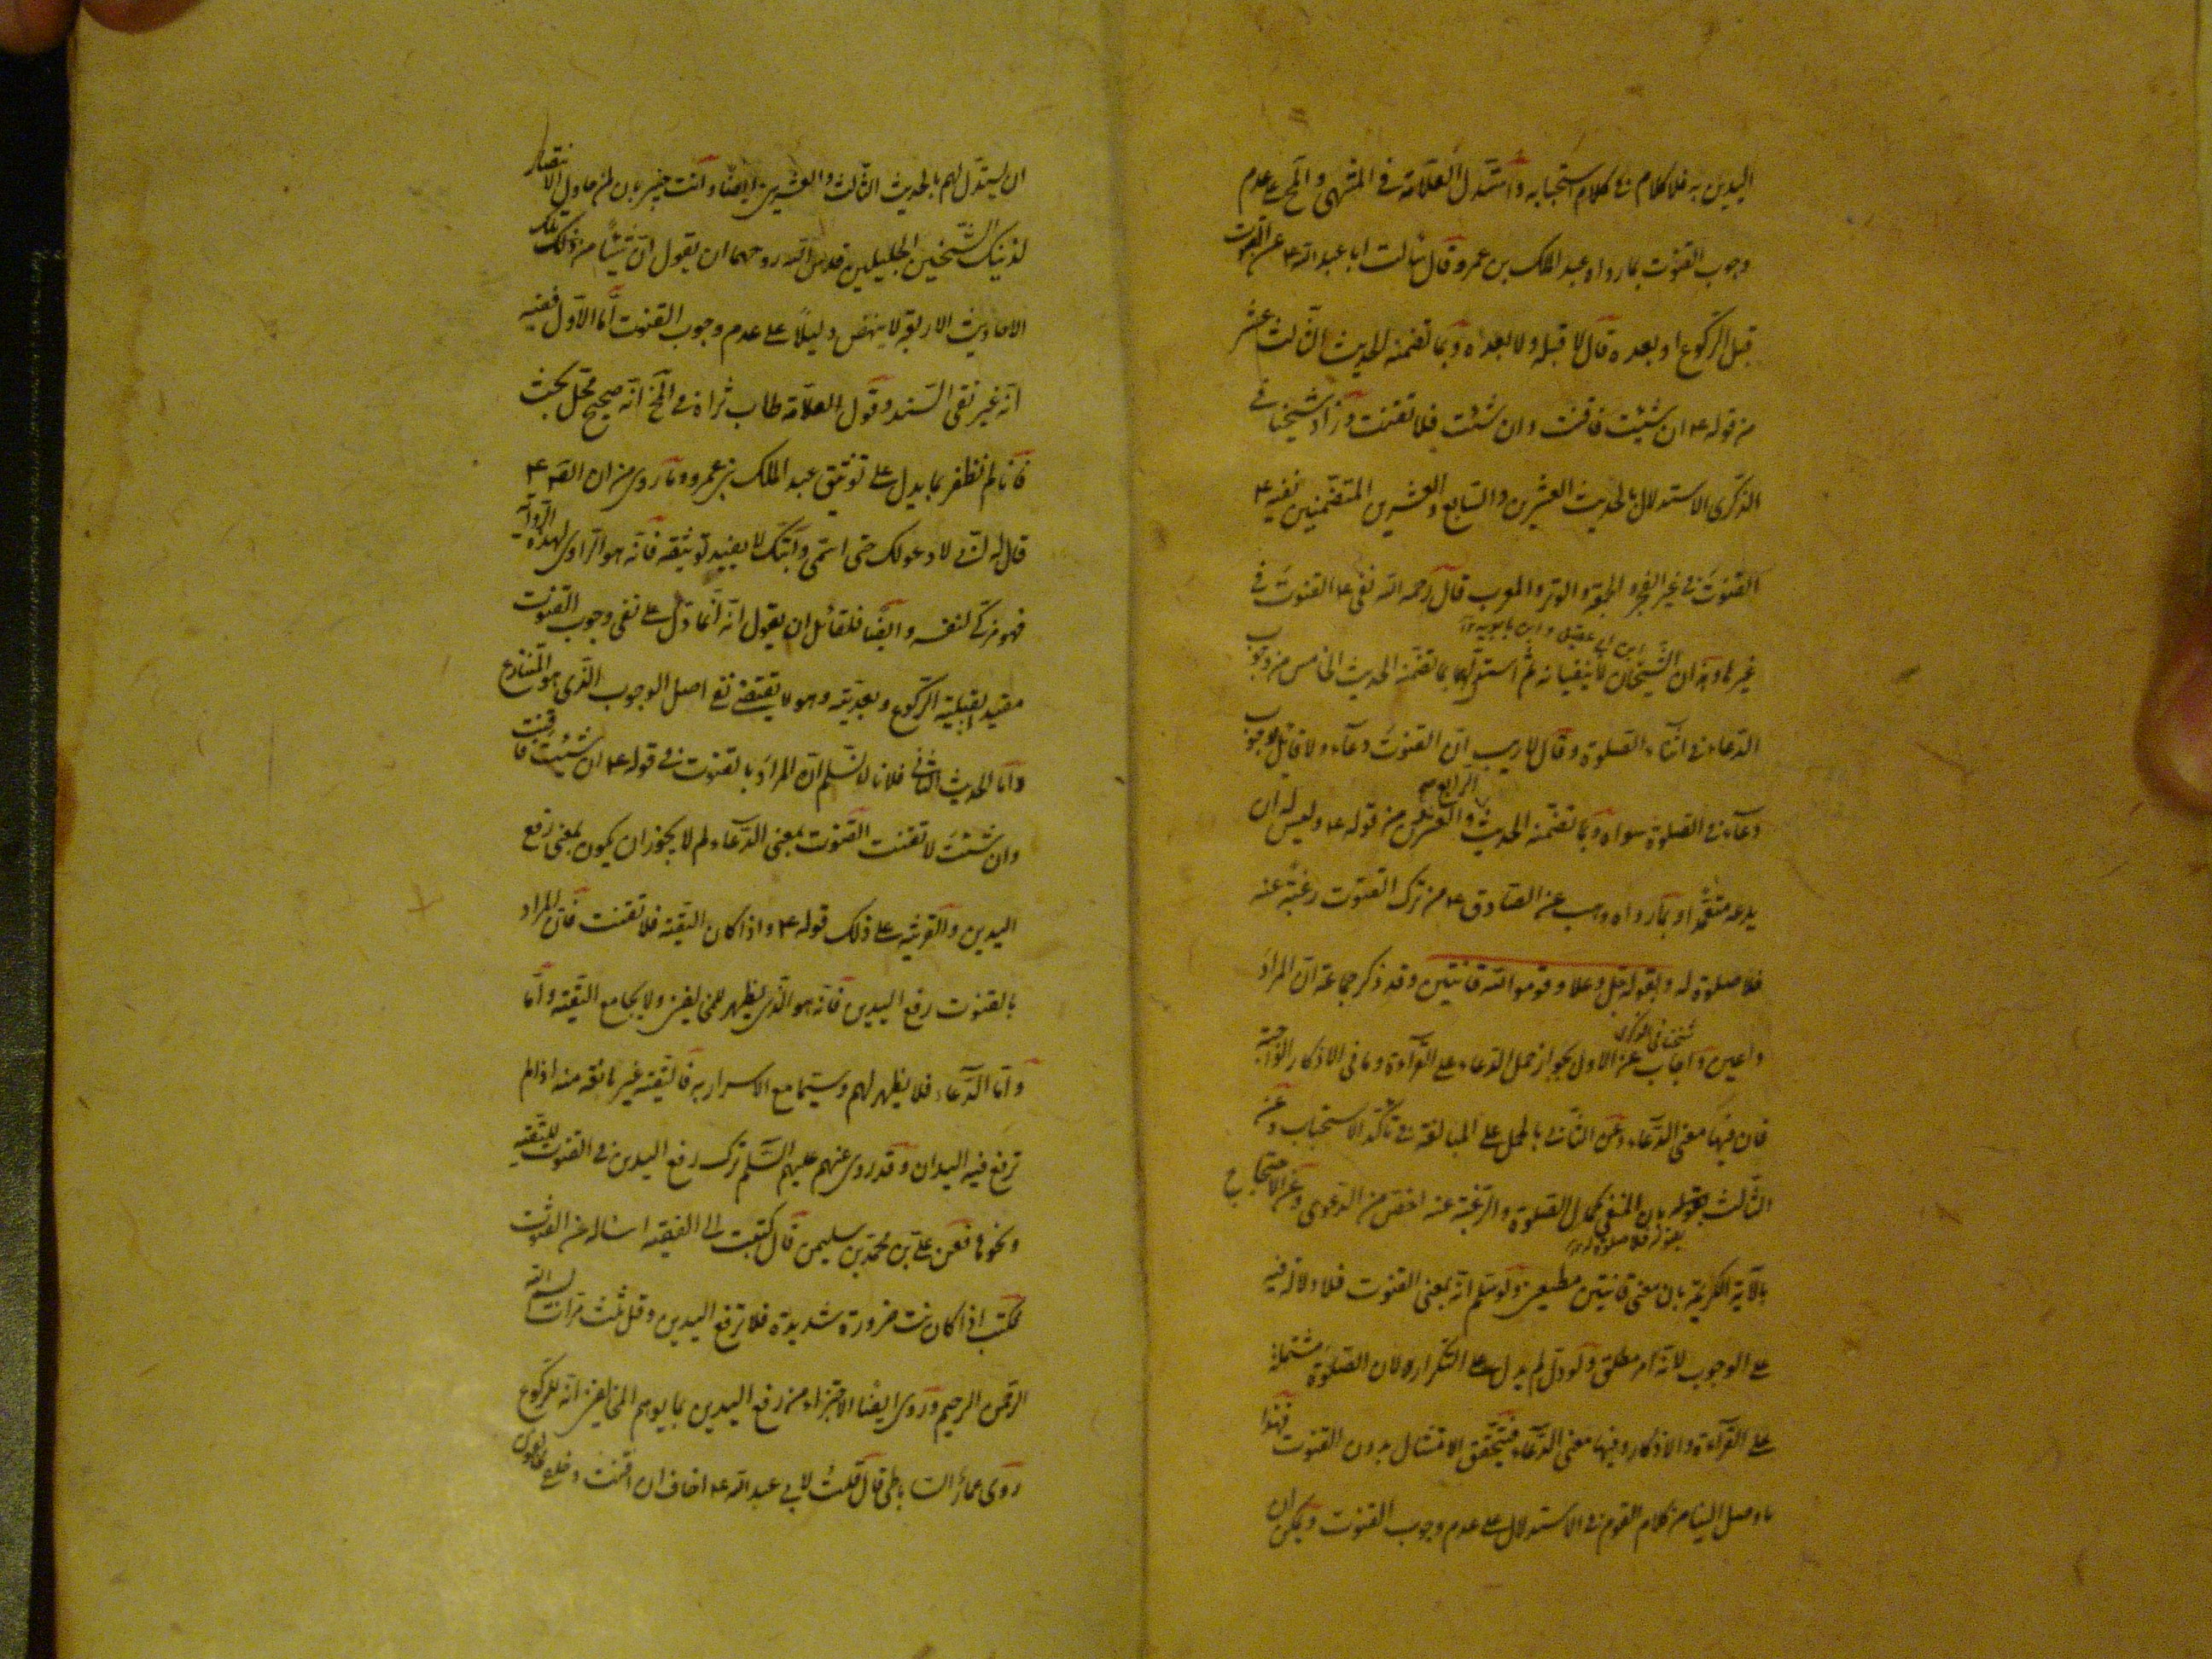 اليدين به فلا كلام في كلام استحبابه واستدل العلامة في المنتهى والمخ على عدم
وجوب القنوت بما رواه عبد الملك بن عمرو قال سألت ابا عبد الله ع عن القنوت
قبل الركوع او بعده قال لا قبله ولا بعده وبما تضمنه الحديث الثالث عشر
من قوله ع ان شئت فاقنت وان شئت فلا تقنت وزاد شيخنا في
الذكرى الاستدلال بالحديث العشرين والسابع والعشرين المتضمنين نفيه ع
القنوت في غير الفجر والجمعة والوتر والمغرب قال رحمه الله نفى ع القنوت في
ابن ابي عقيل وابن بابويه
غير ان الشيخان لا ينفيانه ثم استدل لهما بما تضمنه الحديث الخامس من وجوب
الدعاء في اثناء الصلوة وقال لا ريب ان القنوت دعاء ولا قائل بوجوب
الرابع
دعاء في الصلوة سواه وبما تضمنه الحديث والعشرين من قوله ع وليس له ان
يدعه متعمدا وبما رواه وهب عن الصادق ع من ترك القنوت رغبة عنه
فلا صلوة له وبقوله جل وعلا وقوموا لله قانتين وقد ذكر جماعة ان المراد
شيخنا في الذكرى
داعين واجاب عن الاول بجواز حمل الدعاء على القراءة وباقي الاذكار الواجبة
فان فيها معنى الدعاء وعن الثاني بالحمل على المبالغة في تأكد الاستحباب وعن
الثالث بان المنفي كمال الصلوة والرغبة عنه اخص من الدعوى وعن الاحتجاج
بقوله فلا صلوة له
بالآية الكريمة بان معنى قانتين مطيعين ولو سلم انه بمعنى القنوت فلا دلالة فيه
على الوجوب لانه امر مطلق ولو دل لم يدل على التكرار ولان الصلوة مشتملة
على القراءة والاذكار وفيها معنى الدعاء فيتحقق الامتثال بدون القنوت فهذا
ما وصل الينا من كلام القوم في الاستدلال على عدم وجوب القنوت ويمكن ان
ان يستدل لهم بالحديث الثالث والعشرين ايضا وانت خبير بان لمن حاول الانتصار
لذينك الشيخين الجليلين قدس الله روحهما ان يقول ان شيئا من تلك
الاحاديث الاربعة لا ينهض دليلا على عدم وجوب القنوت أما الاول ففيه
انه غير نقي السند وقول العلامة طاب ثراه في المخ انه صحيح محل بحث
فانا لم نظفر بما يدل على توثيق عبد الملك بن عمرو وما روى من ان الصـ ع
قال له اني لادعو لك حتى اسمي دابتك لا يفيد توثيقه فانه هو الراوي لهذه الرواية
فهو مزكي لنفسه وايضا فلقائل ان يقول انه انما دل على نفي وجوب القنوت
مقيد بقبلية الركوع وبعديته وهو لا يقتضي نفي اصل الوجوب الذي هو المتنازع
واما الحديث الثاني فلانا لا نسلم ان المراد بالقنوت في قوله ع ان شئت فاقنت
وان شئت لا تقنت القنوت بمعنى الدعاء ولم لا يجوز ان يكون بمعنى رفع
اليدين والقرينة على ذلك قوله ع واذا كان التقية فلا تقنت فان المراد
بالقنوت رفع اليدين فانه هو الذي يظهر للمخالفين ولا يجامع التقية واما
واما الدعاء فلا يظهر لهم وسيما مع الاسرار به فالتقية غير مانعة منه اذا لم
ترفع فيه اليدان وقد روى عنهم عليهم السلم ترك رفع اليدين في القنوت للتقية
ونحوها فعن علي بن محمد بن سليمن قال كتبت الى الفقيه اسأله عن القنوت
فكتب اذا كانت ضرورة شديدة فلا ترفع اليدين وقل ثلث مرات بسم الله
الرحمن الرحيم وروى ايضا الاجتزاء من رفع اليدين بما يوهم المخالفين انه للركوع
روى عمار الساباطي قال قلت لابي عبد الله ع اخاف ان اقنت وخلفي مخالفون